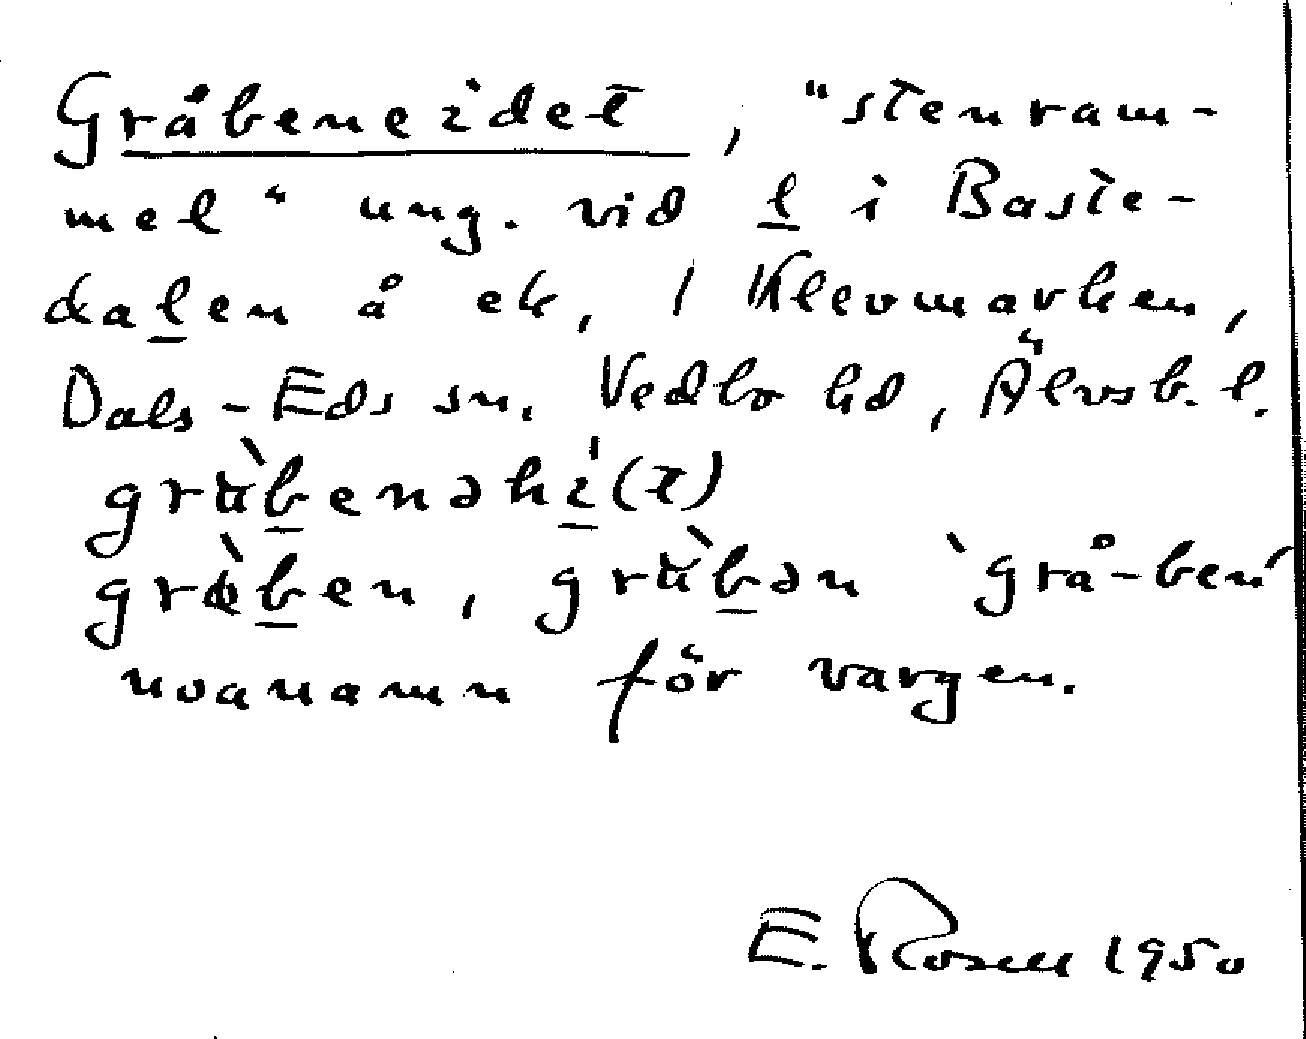 Gråbeneidet, "stenram-
mel" ung. vid l i Baste-
dalen å ek, / Klevmarken,
Dals-Eds sn. Vedbo hd, Älvsb. l.
gråben, `grå-ben´
noanamn för vargen.
E. Rosell 1950